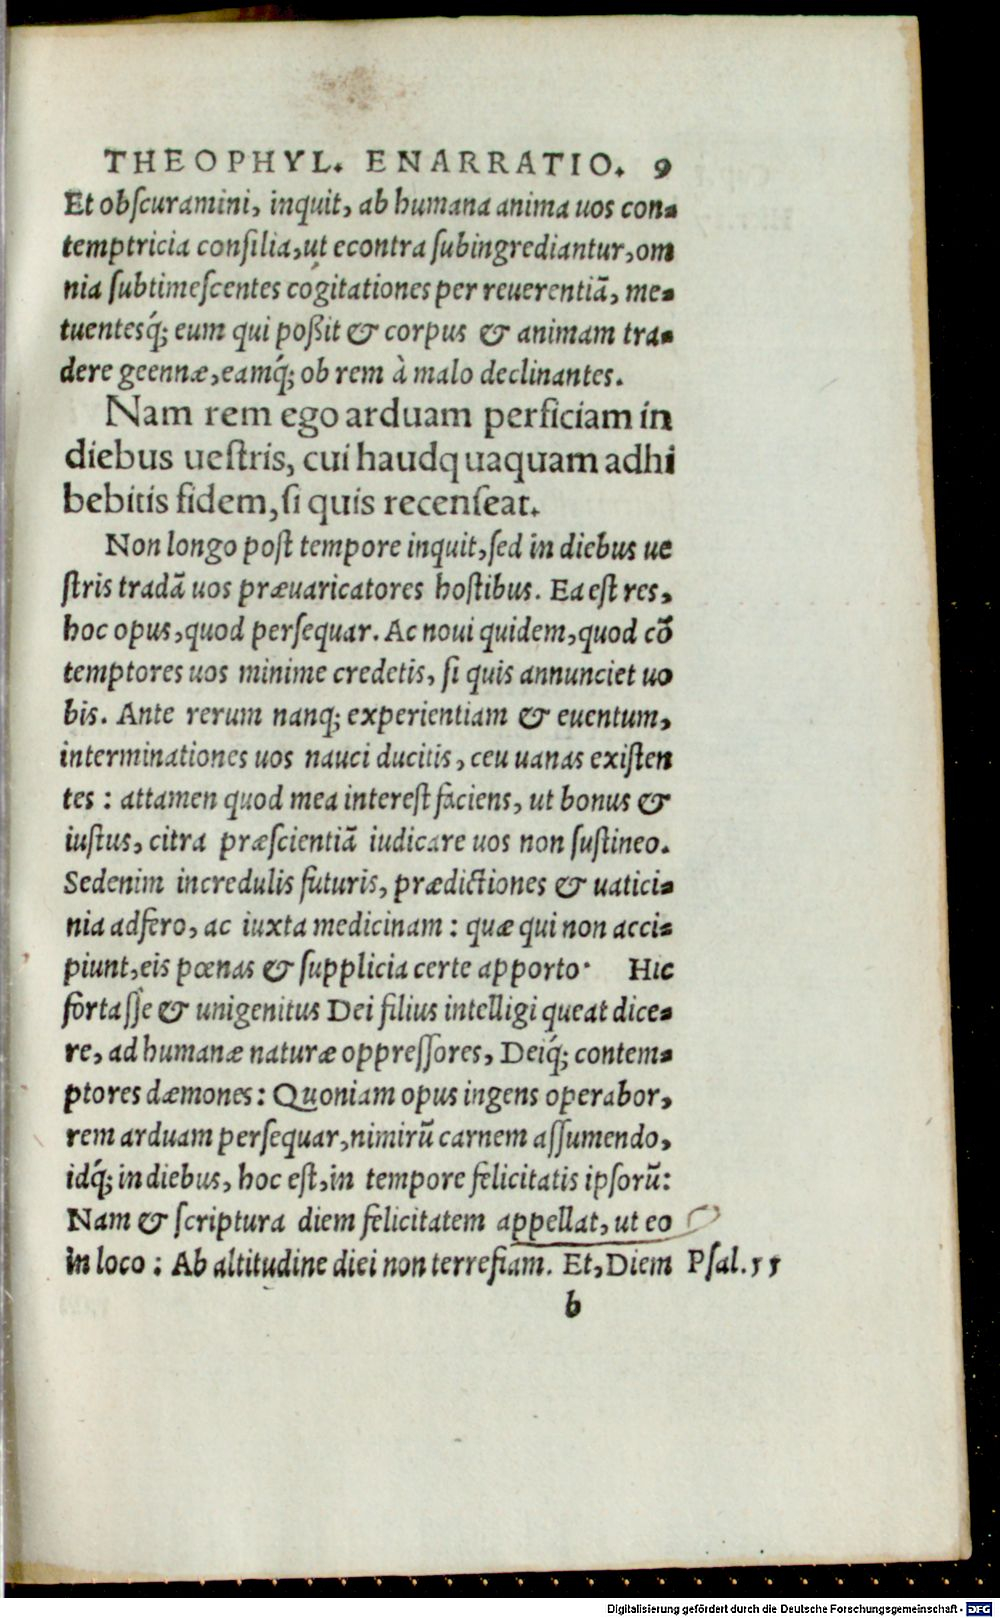 THEOPHYL. ENARRATIO. 9
Et obſcuramini, inquit, ab humana anima uos con-
temptricia conſilia, ut econtra ſubingrediantur, om
nia ſubtimeſcentes cogitationes per reuerentiã, me-
tuentesq́; eum qui poßit & corpus & animam tra-
dere geennæ, eamq́; ob rem à malo declinantes.
Nam rem ego arduam perficiam in
diebus ueſtris, cui haudquaquam adhi
bebitis fidem, ſi quis recenſeat.
Non longo poſt tempore inquit, ſed in diebus ue
ſtris tradã uos præuaricatores hoſtibus. Ea eſt res,
hoc opus, quod perſequar. Ac noui quidem, quod cõ
temptores uos minime credetis, ſi quis annunciet uo
bis. Ante rerum nanq; experientiam & euentum,
interminationes uos nauci ducitis, ceu uanas exiſten
tes : attamen quod mea intereſt faciens, ut bonus &
iuſtus, citra præſcientiã iudicare uos non ſuſtineo.
Sedenim incredulis futuris, prædictiones & uatici-
nia adfero, ac iuxta medicinam : quæ qui non acci-
piunt, eis pœnas & ſupplicia certe apporto. Hic
fortaſſe & unigenitus Dei filius intelligi queat dice-
re, ad humanæ naturæ oppreſſores, Deiq́; contem-
ptores dæmones : Quoniam opus ingens operabor,
rem arduam perſequar, nimirũ carnem aſſumendo,
idq́; in diebus, hoc eſt, in tempore felicitatis ipſorũ:
Nam & ſcriptura diem felicitatem appellat, ut eo
in loco : Ab altitudine diei non terrefiam. Et, Diem Pſal.55
b
Digitalisierung gefördert durch die Deutsche Forschungsgemeinschaft - DFG